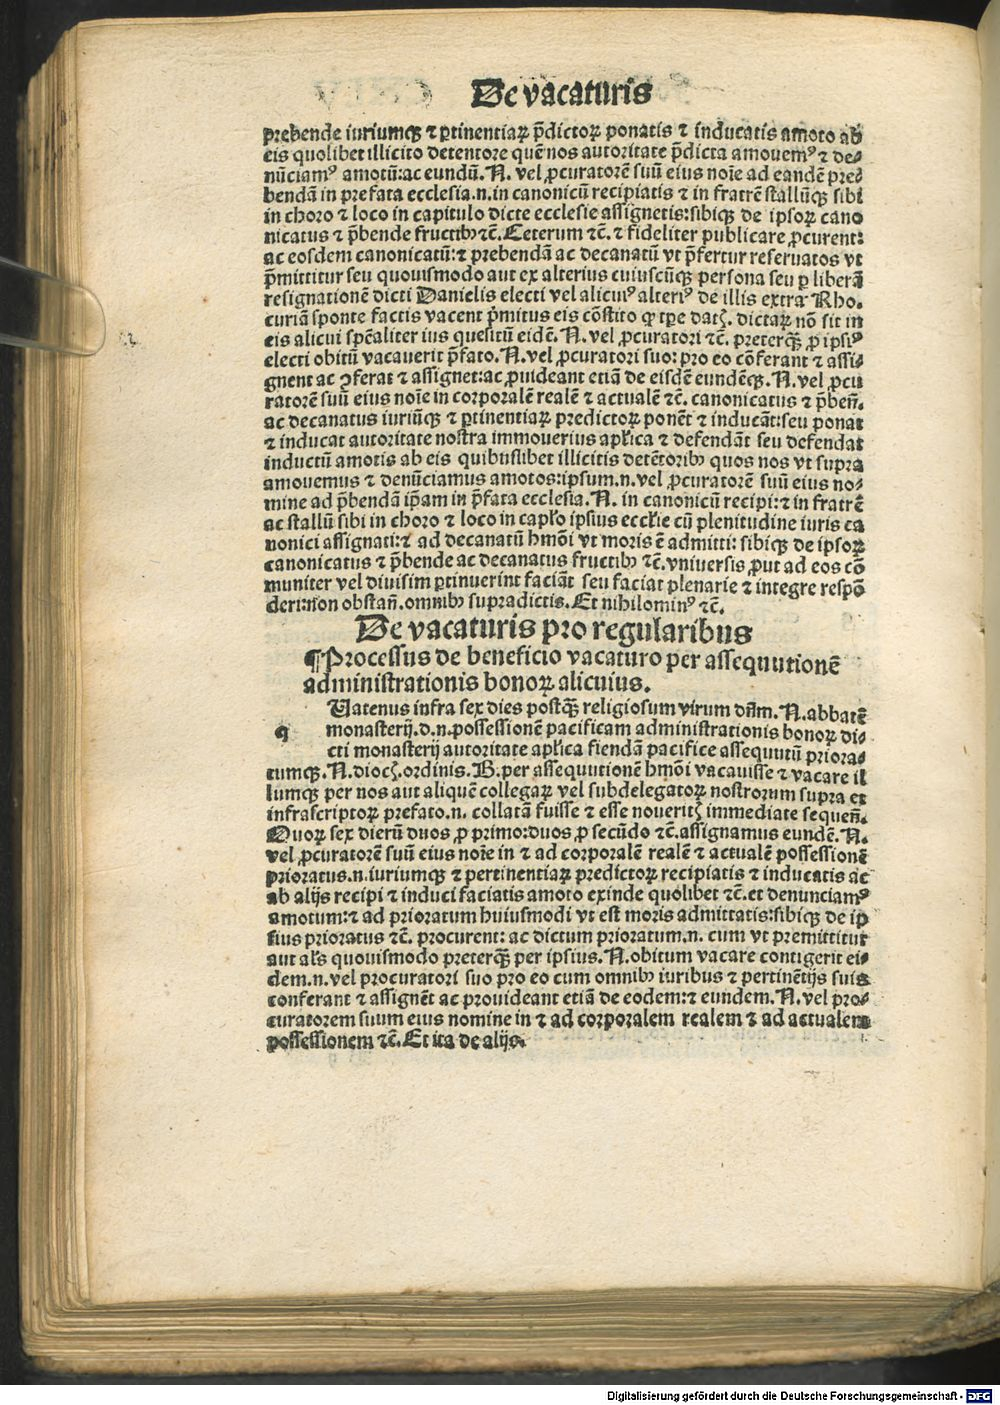 De vacaturis
prebende iuriumqꝫ ⁊ ꝑtinentiaꝝ p̄dictoꝝ ponatis ⁊ inducatis amoto ab
eis quolibet illicito detentore quē nos autoritate p̄dicta amouemꝰ ⁊ de⸗
nūciamꝰ amotū:ac eundū. N. vel ꝓcuratorē suū eius noīe ad eandē pre⸗
bendā in prefata ecclesia.n.in canonicū recipiatis ⁊ in fratrē stallūqꝫ sibi
in choro ⁊ loco in capitulo dicte ecclesie assignetis:sibiqꝫ de ipsoꝝ cano
nicatus ⁊ p̄bende fructibꝫ ⁊c̄. Ceterum ⁊c̄. ⁊ fideliter publicare ꝓcurent:
ac eosdem canonicatū:⁊ prebendā ac decanatū vt p̄fertur reseruatos vt
p̄mittitur seu quouismodo aut ex alterius cuiuscūqꝫ persona seu ꝑ liberā
resignationē dicti Danielis electi vel alicuiꝰ alteriꝰ de illis extra Rho.
curiā sponte factis vacent p̄mitus eis cōstito ꝙ tꝑe datꝫ. dictaꝝ nō sit in
eis alicui sp̄ealiter ius quesitū eidē. N. vel ꝓcuratori ⁊c̄. preterqꝫ ꝓ ipsiꝰ
electi obitū vacauerit p̄fato. N. vel ꝓcuratori suo: pro eo cōferant ⁊ assi⸗
gnent ac ꝯferat ⁊ assignet:ac ꝓuideant etiā de eisdē eundēqꝫ. N. vel ꝓcu
ratorē suū eius noīe in corporalē realē ⁊ actualē ⁊c̄. canonicatus ⁊ p̄ben̄.
ac decanatus iuriūqꝫ ⁊ ꝑtinentiaꝝ predictoꝝ ponēt ⁊ inducāt:seu ponat
⁊ inducat autoritate nostra immouerius apl̄ica ⁊ defendāt seu defendat
inductū amotis ab eis quibuslibet illicitis detētoribꝫ quos nos vt supra
amouemus ⁊ denūciamus amotos:ipsum.n.vel ꝓcuratorē suū eius no⸗
mine ad p̄bendā ip̄am in p̄fata ecclesia. N. in canonicū recipi:⁊ in fratrē
ac stallū sibi in choro ⁊ loco in capl̄o ipsius eccl̄ie cū plenitudine iuris ca
nonici assignati:⁊ ad decanatū hmōi vt moris ē admitti: sibiqꝫ de ipsoꝝ
canonicatus ⁊ p̄bende ac decanatus fructibꝫ ⁊c̄. vniuersis ꝓut ad eos cō
muniter vel diuisim ꝑtinuerint faciāt seu faciat plenarie ⁊ integre respō
deri:non obstan̄. omnibꝫ supradictis. Et nihilominꝰ ⁊c̄.
De vacaturis pro regularibus
¶Processus de beneficio vacaturo per assequutionē
administrationis bonoꝝ alicuius.
q Uatenus infra sex dies postqꝫ religiosum virum dn̄m. N. abbatē
monasterij.d.n.possessionē pacificam administrationis bonoꝝ di⸗
cti monasterij autoritate apl̄ica fiendā pacifice assequutū priora⸗
tumqꝫ. N. diocꝫ. ordinis. B. per assequutionē hmōi vacauisse ⁊ vacare il
lumqꝫ per nos aut aliquē collegaꝝ vel subdelegatoꝝ nostrorum supra et
infrascriptoꝝ prefato.n. collatā fuisse ⁊ esse noueritꝫ immediate sequen̄.
Quoꝝ sex dierū duos ꝓ primo:duos ꝓ secūdo ⁊c̄.assignamus eundē. N.
vel ꝓcuratorē suū eius noīe in ⁊ ad corporalē realē ⁊ actualē possessionē
prioratus.n.iuriumqꝫ ⁊ pertinentiaꝝ predictoꝝ recipiatis ⁊ inducatis ac
ab alijs recipi ⁊ induci faciatis amoto exinde quolibet ⁊c̄.et denunciamꝰ
amotum:⁊ ad prioratum huiusmodi vt est moris admittatis:sibiqꝫ de ip
sius prioratus ⁊c̄. procurent: ac dictum prioratum.n. cum vt premittitur
aut al̄s quouismodo preterqꝫ per ipsius. N.obitum vacare contigerit ei⸗
dem.n. vel procuratori suo pro eo cum omnibꝫ iuribus ⁊ pertinētijs suis
conferant ⁊ assignēt ac prouideant etiā de eodem:⁊ eundem. N. vel pro⸗
curatorem suum eius nomine in ⁊ ad corporalem realem ⁊ ad actualem
possessionem ⁊c̄. Et ita de alijs.
Digitalisierung gefördert durch die Deutsche Forschungsgemeinschaft - DFG